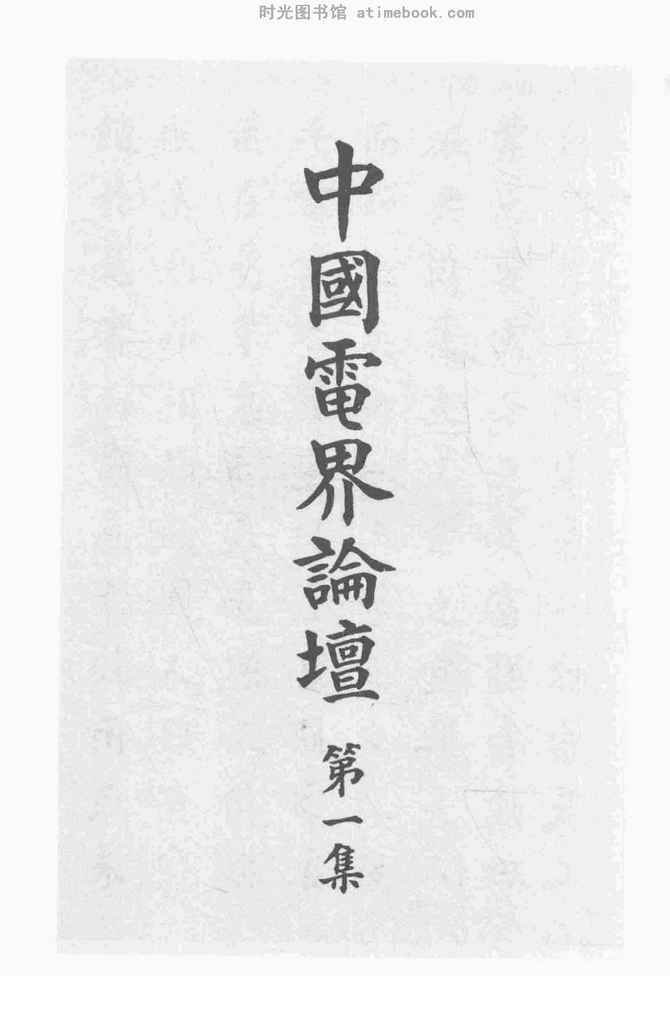 时光图书馆 atimebook.com
中國電界論壇 第一集